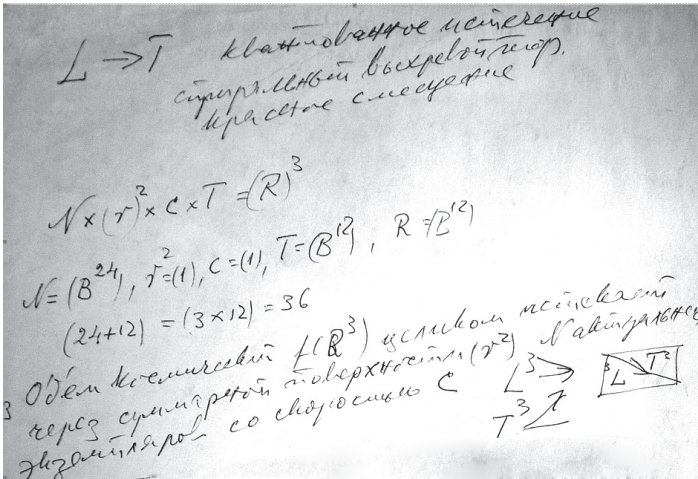 L → T квантованное истечение
спиральный вихревой тор.
красное смещение
N × (r)² × c × T = (R)³
N = (B²⁴), r² = (1), c = (1), T = (B¹²), R = (B¹²)
(24 + 12) = (3 × 12) = 36
Объём космический f(R³) целиком истекает
через суммарной поверхности (r²) N актуальных
экземпляров со скоростью c
L³ →
T³
³L T³